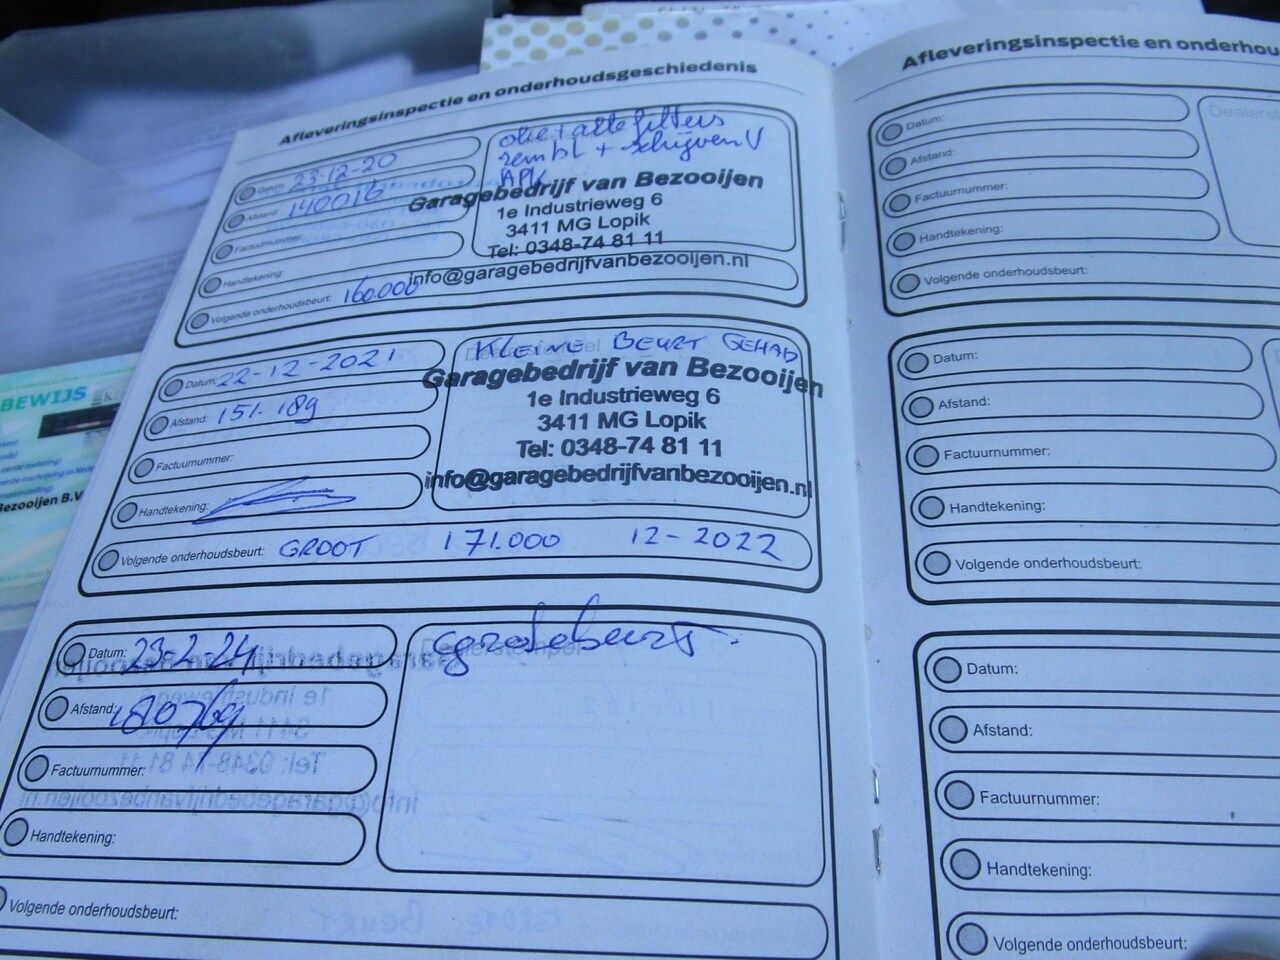 Afleveringsinspectie en onderhoudsgeschiedenis
Datum: 23-12-20
Afstand: 140016
Factuurnummer:
Handtekening:
Volgende onderhoudsbeurt: 160.000
olie + alle filters
rembl + schijven V
APK
Garagebedrijf van Bezooijen
1e Industrieweg 6
3411 MG Lopik
Tel: 0348-74 81 11
info@garagebedrijfvanbezooijen.nl
Datum: 22-12-2021
Afstand: 151.189
Factuurnummer:
Handtekening:
Volgende onderhoudsbeurt: GROOT 171.000 12-2022
KLEINE BEURT GEHAD
Garagebedrijf van Bezooijen
1e Industrieweg 6
3411 MG Lopik
Tel: 0348-74 81 11
info@garagebedrijfvanbezooijen.nl
Datum: 23-2-24
Afstand:
Factuurnummer:
Handtekening:
Volgende onderhoudsbeurt:
Dealerstempel
grote beurt.
Afleveringsinspectie en onderhou
Datum:
Afstand:
Factuurnummer:
Handtekening:
Volgende onderhoudsbeurt:
Dealerst
Datum:
Afstand:
Factuurnummer:
Handtekening:
Volgende onderhoudsbeurt:
Datum:
Afstand:
Factuurnummer:
Handtekening:
Volgende onderhoudsbeurt:
BEWIJS
Bezooijen B.V